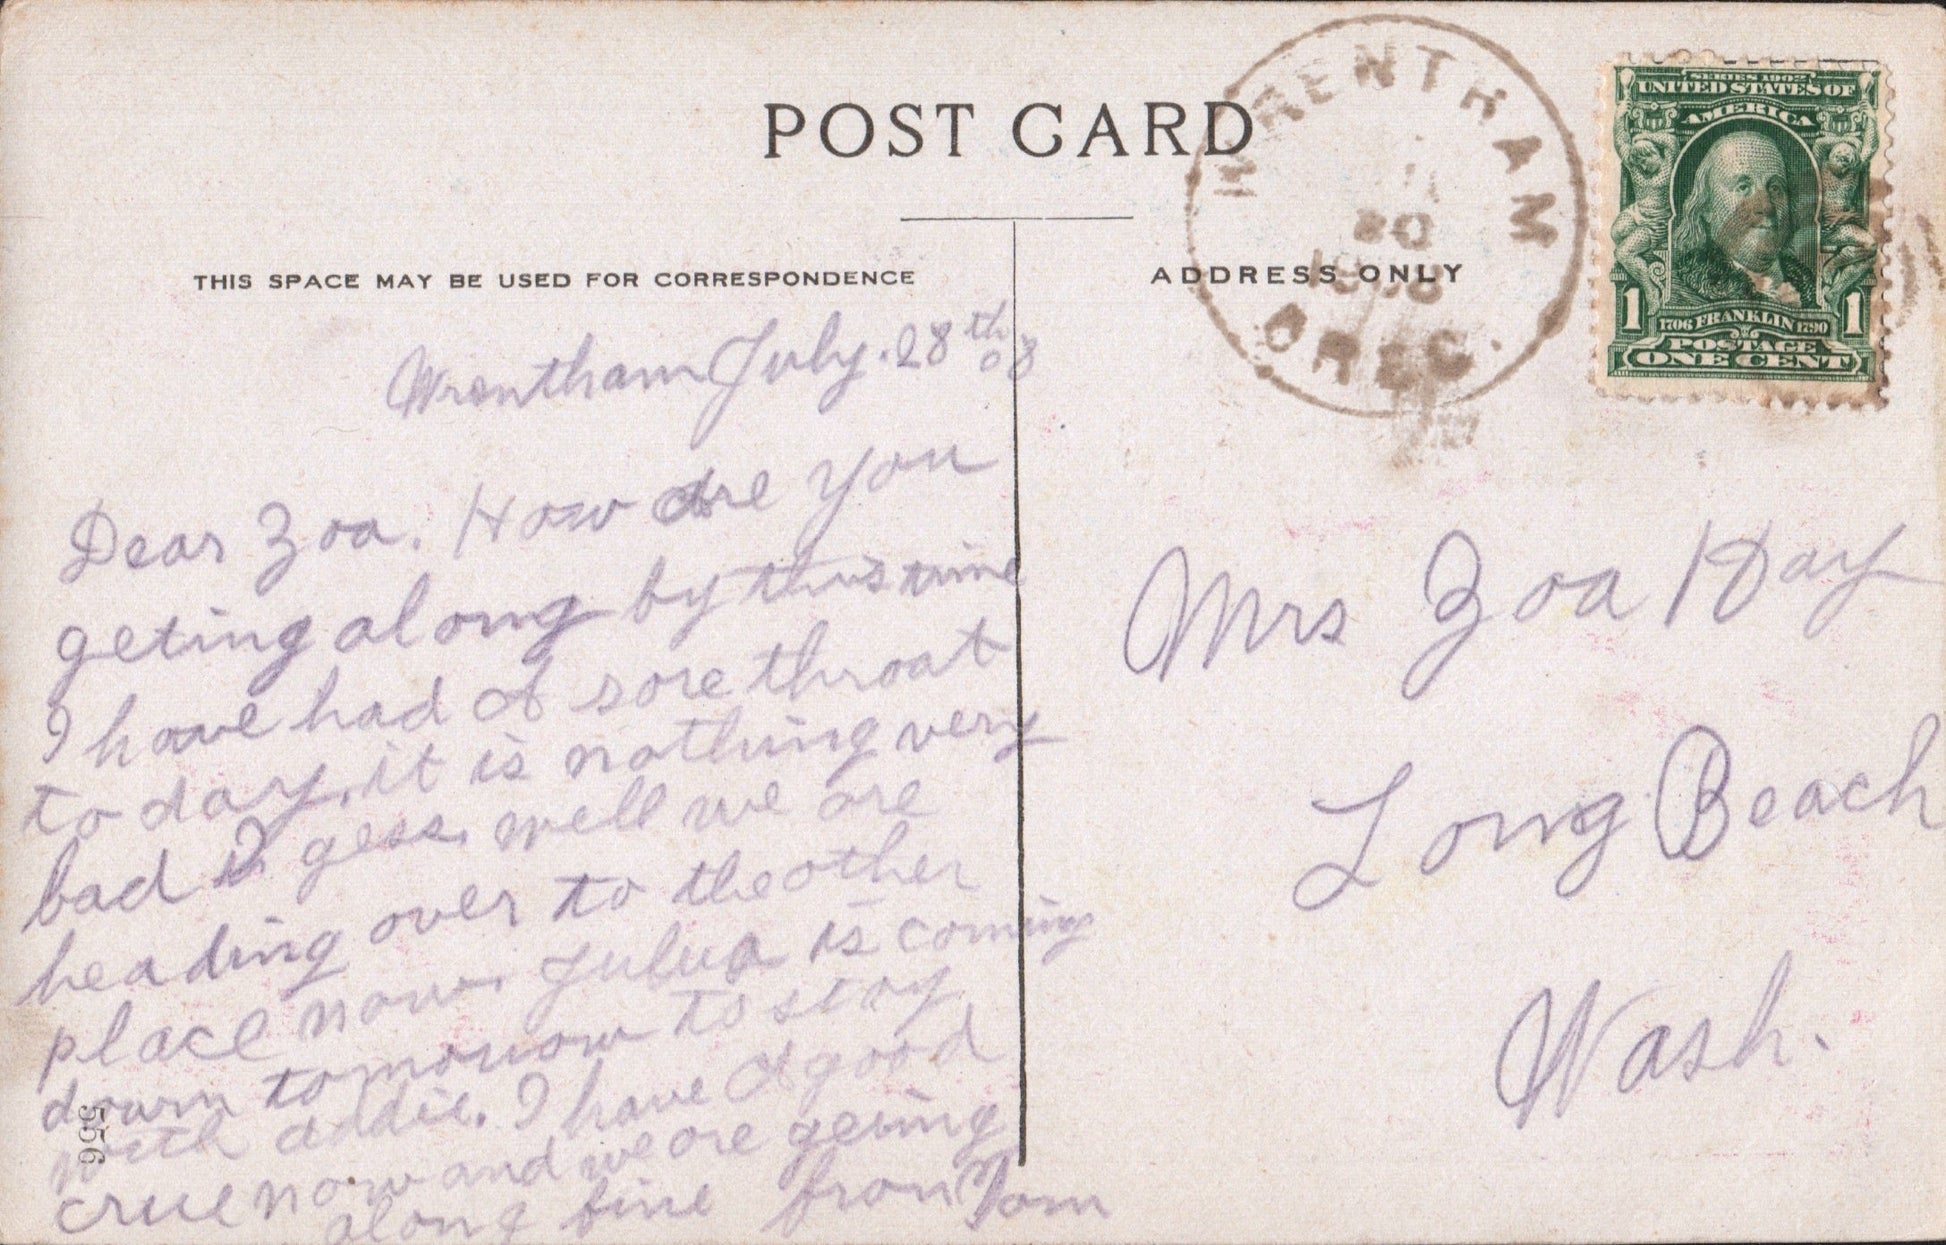 POST CARD
WRENTHAM
30
1908
OREG.
SERIES 1902
UNITED STATES OF
AMERICA
1 1706 FRANKLIN 1790 1
POSTAGE
ONE CENT
THIS SPACE MAY BE USED FOR CORRESPONDENCE
ADDRESS ONLY
Wrentham July. 28th 08
Dear Zoa. How are you
geting along by this time
I have had A sore throat
to day, it is nothing very
bad I gess. well we are
heading over to the other
place now. Julua is coming
down tomorrow to stay
with addie. I have A good
crue now and we are geting
along fine from Tom
556
Mrs Zoa Hay
Long Beach
Wash.